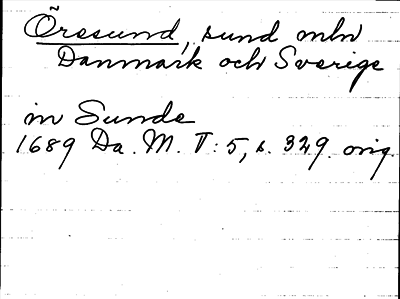 Öresund, sund mln
Danmark och Sverige
m Sunde
1689 Da. M. T: 5, s. 329. orig.